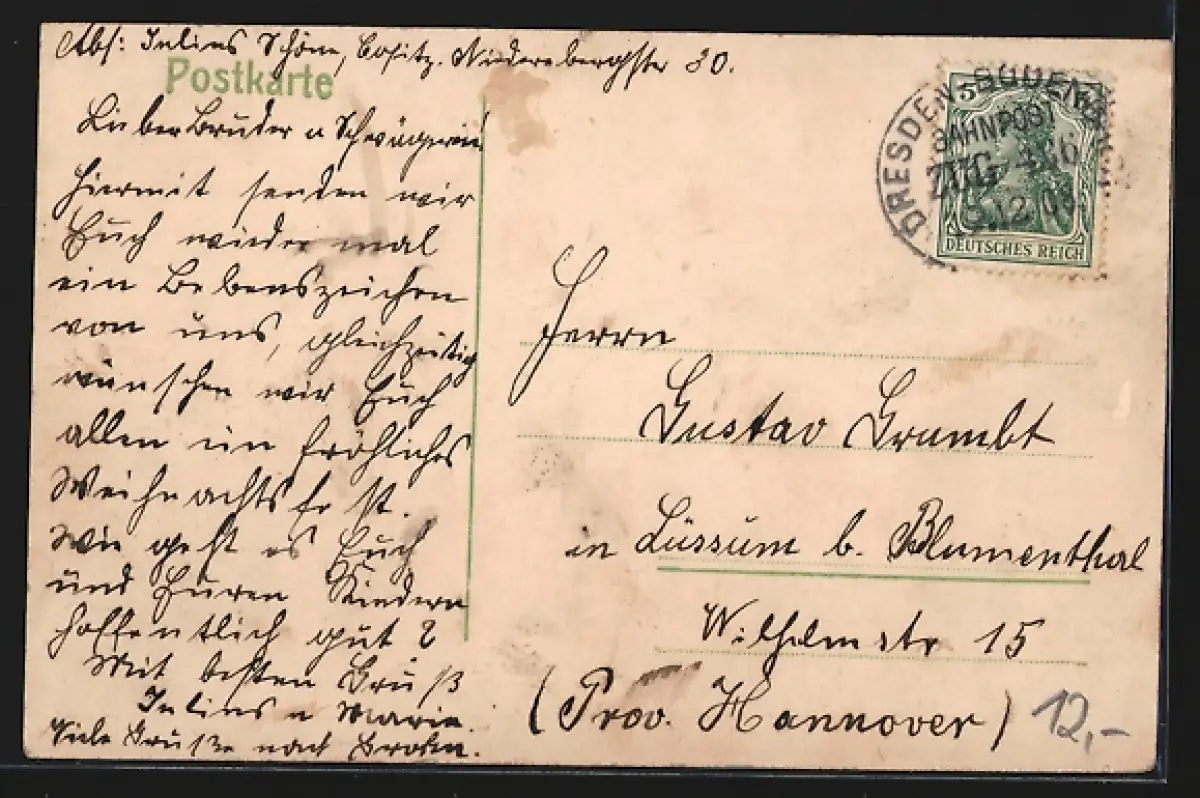 Abs: Julius Schöne, Cossitz. Niederebergstr 30.
Postkarte
Lieber Bruder u Schwägerin!
Hiermit senden wir
Euch wieder mal
ein Lebenszeichen
von uns, gleichzeitig
wünschen wir Euch
allen ein fröhliches
Weihnachtsfest.
Wie geht es Euch
und Euren Kindern
hoffentlich gut?
Mit besten Gruß
Julius u Maria.
Viele Grüße nach
DRESDEN-BODENBACH
BAHNPOST
ZUG
12 08
DEUTSCHES REICH
Herrn
Gustav Grumbt
in Lüssum b. Blumenthal
Wilhelmstr 15
(Prov. Hannover)
12,-